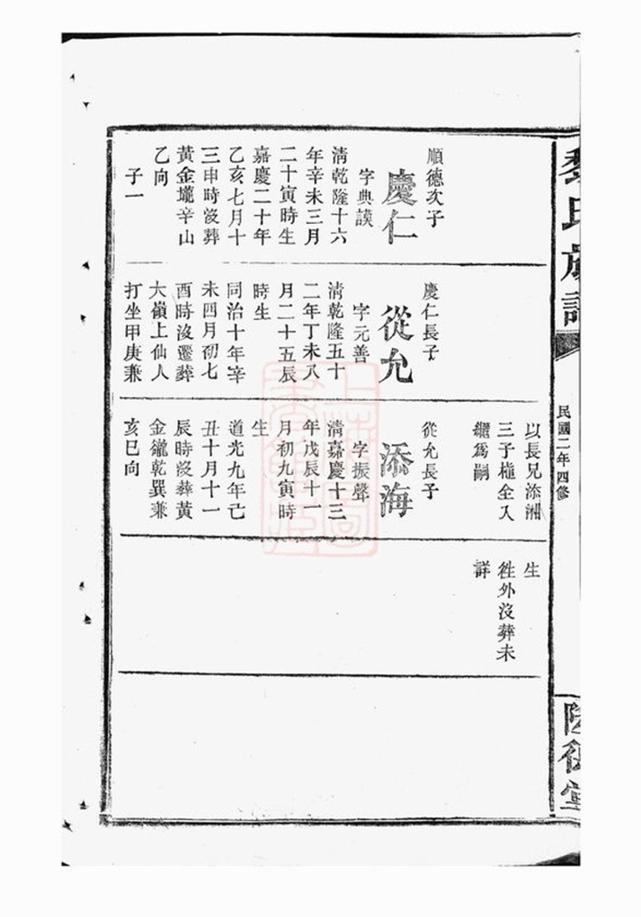 氏族譜
民國二年四修
堂
順德次子
慶仁
字典謨
清乾隆十六
年辛未三月
二十寅時生
嘉慶二十年
乙亥七月十
三申時沒葬
黃金壠辛山
乙向
子一
慶仁長子
從允
字元善
清乾隆五十
二年丁未八
月二十五辰
時生
同治十年辛
未四月初七
酉時沒遷葬
大嶺上仙人
打坐甲庚兼
以長兄添洲
三子権全入
繼爲嗣
從允長子
添海
字振聲
清嘉慶十三
年戊辰十一
月初九寅時
生
道光九年己
丑十月十一
辰時沒葬黃
金 乾巽兼
亥巳向
生
徃外沒葬未
詳